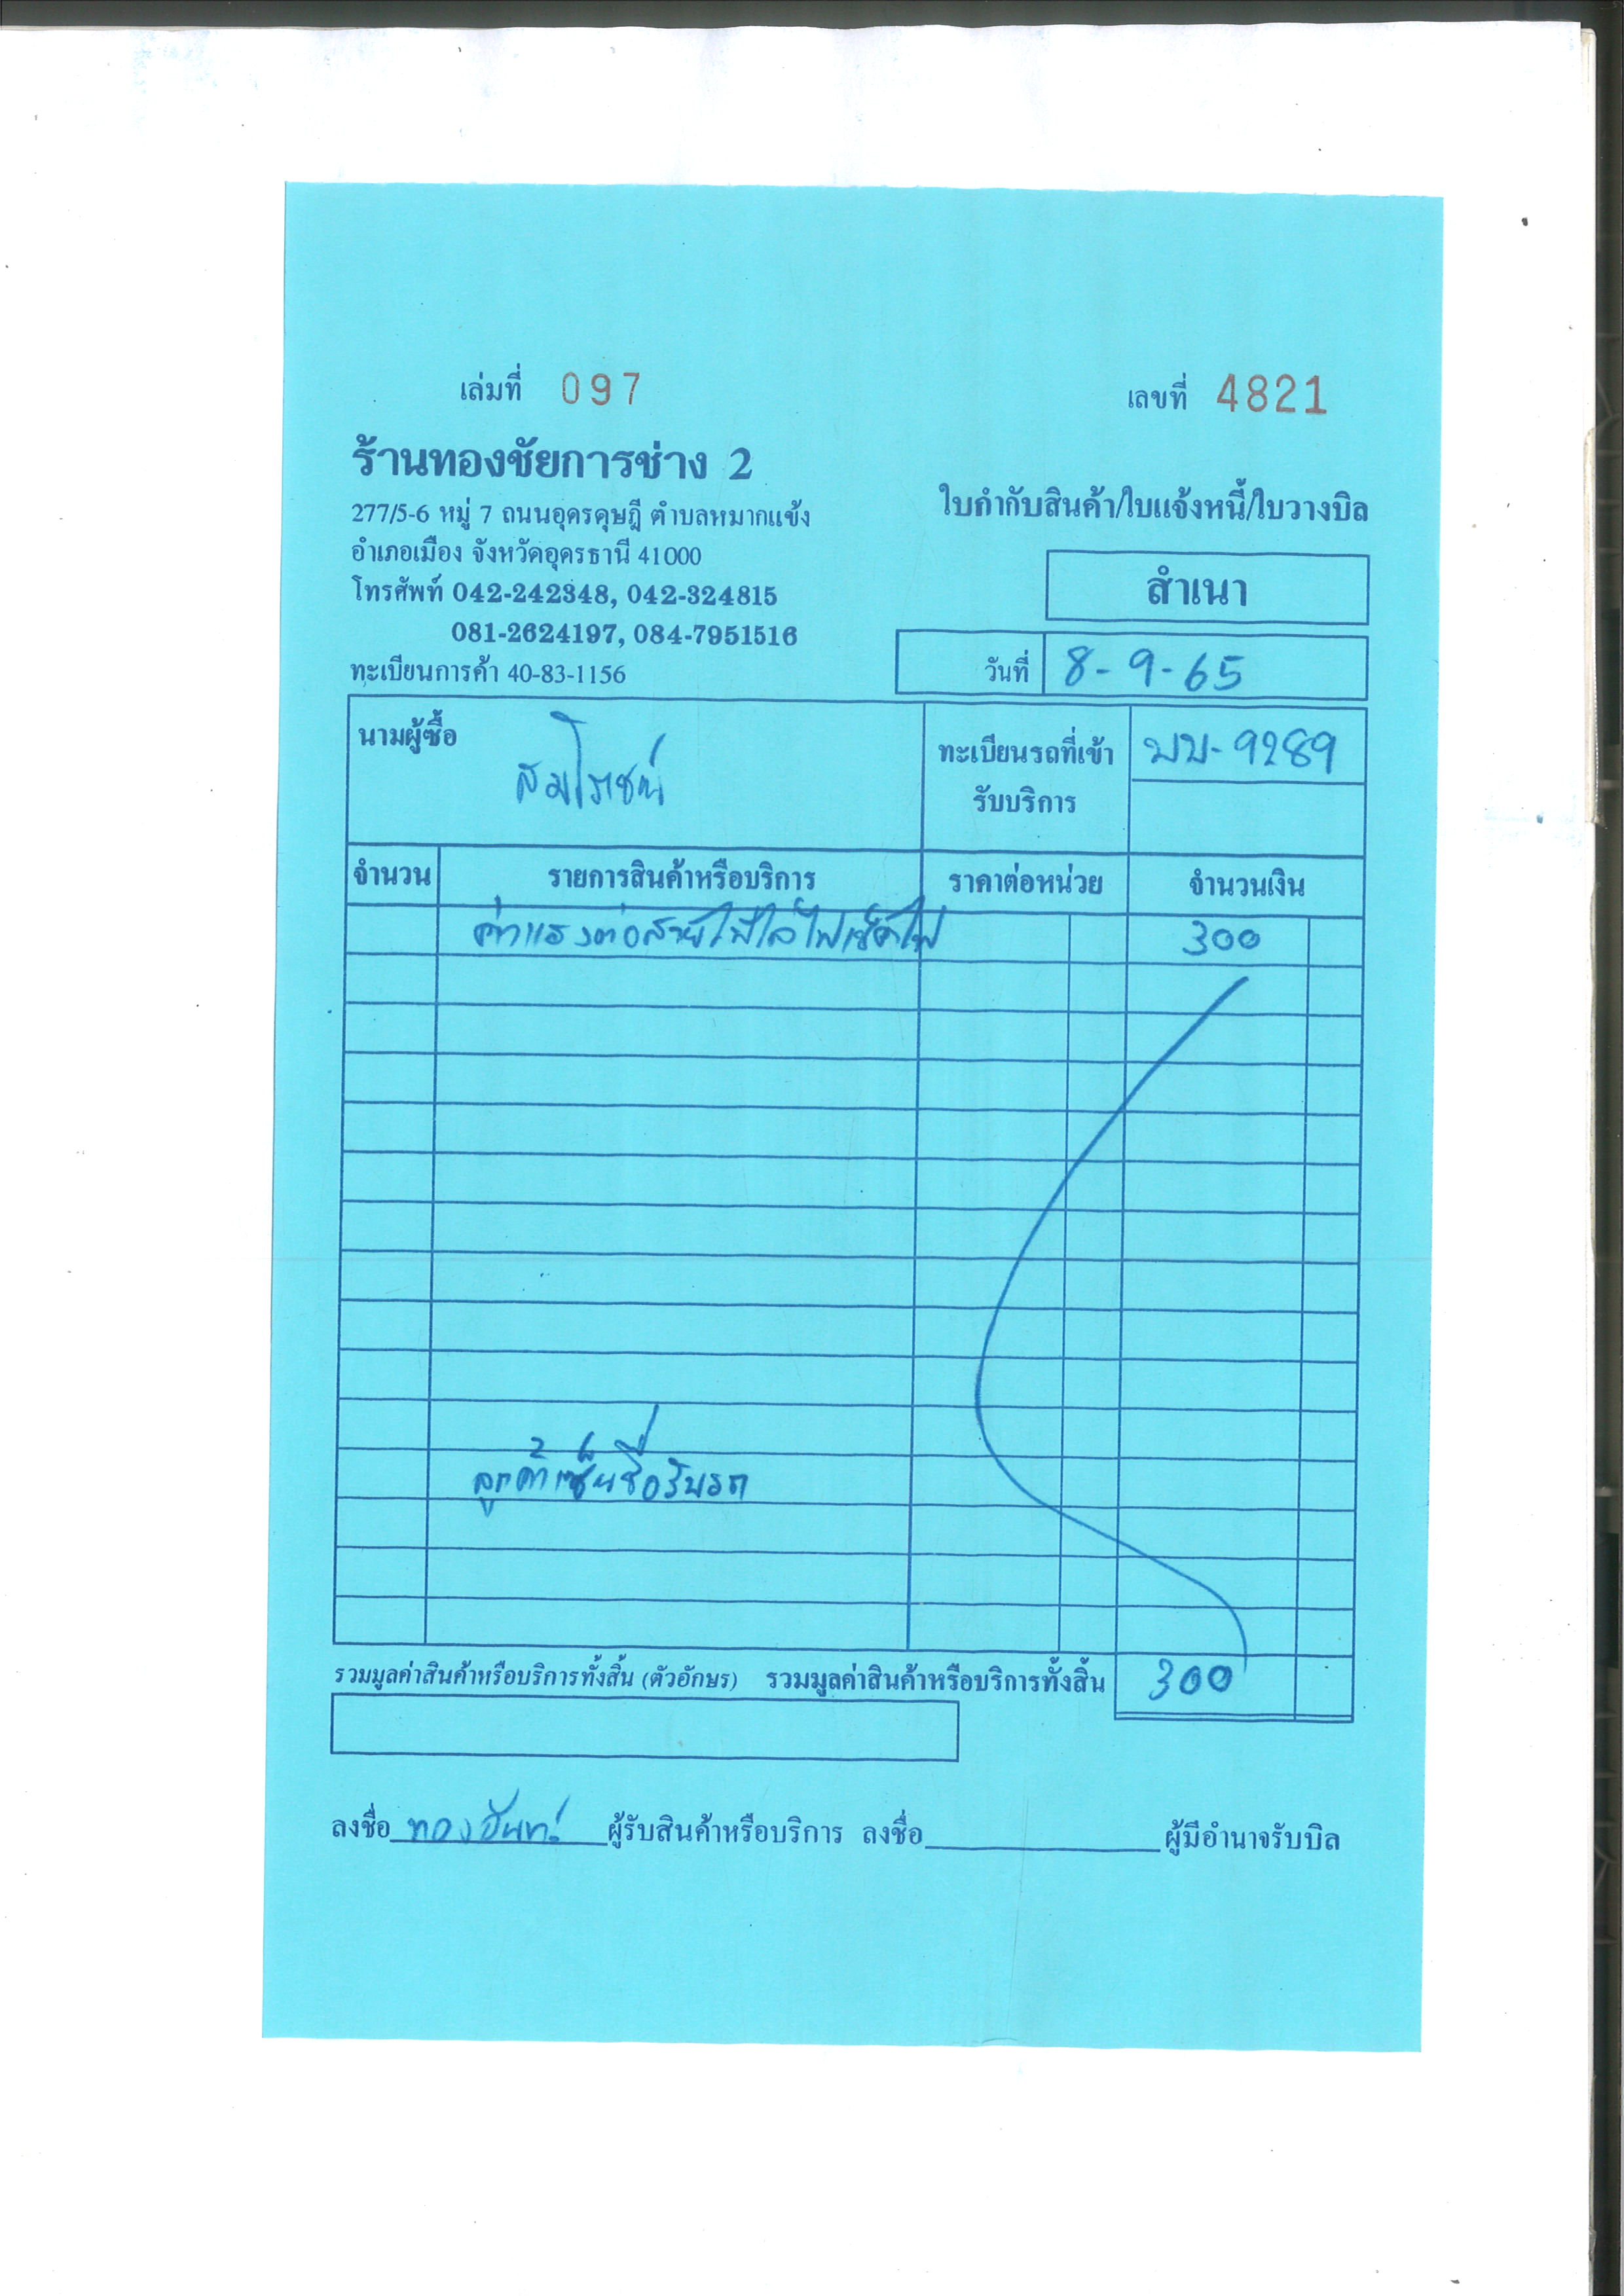 เล่มที่ 097
เลขที่ 4821
ร้านทองชัยการช่าง 2
277/5-6 หมู่ 7 ถนนอุดรดุษฎี ตำบลหมากแข้ง
อำเภอเมือง จังหวัดอุดรธานี 41000
โทรศัพท์ 042-242348, 042-324815
081-2624197, 084-7951516
ทะเบียนการค้า 40-83-1156
ใบกำกับสินค้า/ใบแจ้งหนี้/ใบวางบิล
สำเนา
วันที่ 8-9-65
นามผู้ซื้อ
ทะเบียนรถที่เข้า
รับบริการ
9289
จำนวน รายการสินค้าหรือบริการ ราคาต่อหน่วย จำนวนเงิน
ค่าแรงต่อสายไฟไล่ไฟเช็คไฟ 300
ลูกค้าเซ็นชื่อรับรถ
รวมมูลค่าสินค้าหรือบริการทั้งสิ้น (ตัวอักษร) รวมมูลค่าสินค้าหรือบริการทั้งสิ้น 300
ลงชื่อ ผู้รับสินค้าหรือบริการ ลงชื่อ ผู้มีอำนาจรับบิล